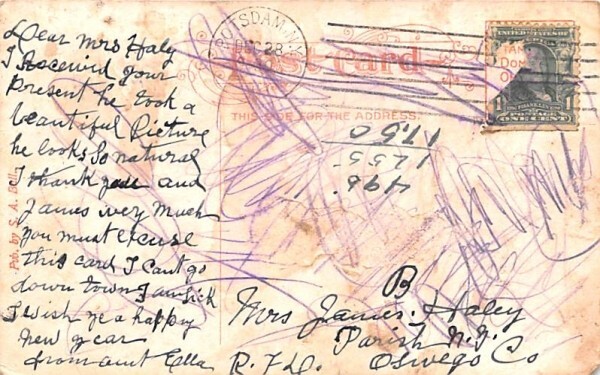 Dear Mrs Haly
I Received your
Present he took a
beautiful Picture
he looks So natural
I thank you and
James very much
you must excuse
this card I Cant go
down town I am Sick
I wish ye a happy
new year
from aunt Ella
POTSDAM, N.Y.
DEC 28
Post Card
THIS SIDE FOR THE ADDRESS.
UNITED STATES OF
POSTAGE
ONE CENT
1 1
17.50
1255
496.
Pub. by S. A.
B
Mrs James Haley
Parish N.Y.
R.F.D. Oswego Co